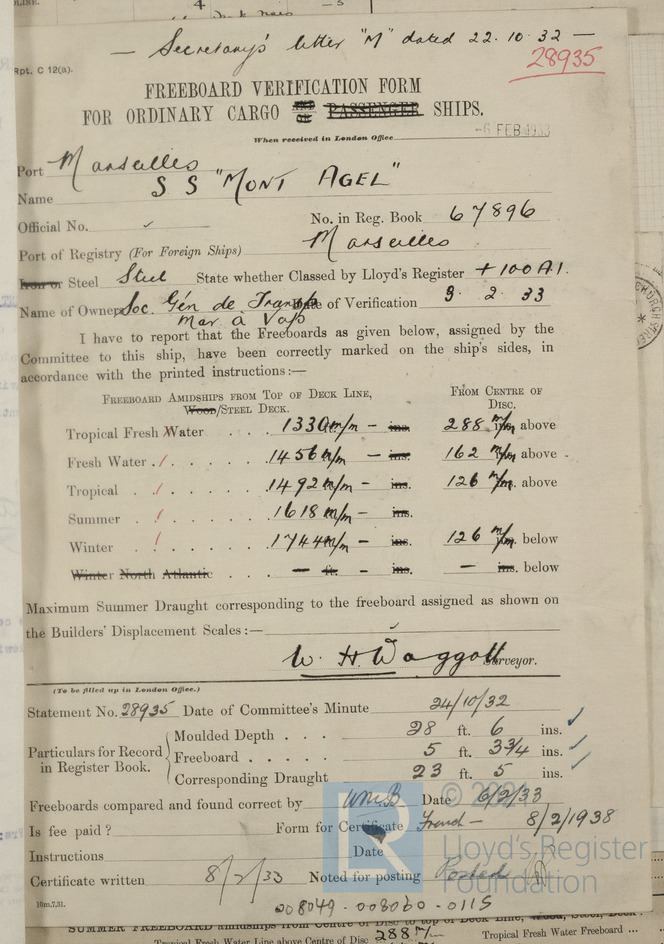 — Secretary's letter "M" dated 22.10.32 —
28935
Rpt. C 12(a).
FREEBOARD VERIFICATION FORM
FOR ORDINARY CARGO AND OR PASSENGER SHIPS.
When received in London Office -6 FEB 1933
Port Marseilles
Name S S "MONT AGEL"
Official No. No. in Reg. Book 67896
Port of Registry (For Foreign Ships) Marseilles
Iron or Steel Steel State whether Classed by Lloyd's Register +100A1.
Name of Owner Soc. Gén de Transp Date of Verification 3. 2. 33
Mar. à Vap
I have to report that the Freeboards as given below, assigned by the
Committee to this ship, have been correctly marked on the ship's sides, in
accordance with the printed instructions:—
FREEBOARD AMIDSHIPS FROM TOP OF DECK LINE, FROM CENTRE OF
Wood/STEEL DECK. DISC.
Tropical Fresh Water . . . 1330 m/m – ins. 288 m/m above
Fresh Water . . . . . 1456 m/m – ins. 162 m/m above
Tropical . . . . . . 1492 m/m – ins. 126 m/m above
Summer . . . . . . 1618 m/m – ins.
Winter . . . . . . 1744 m/m – ins. 126 m/m below
Winter North Atlantic . . . — ft. – ins. — ins. below
Maximum Summer Draught corresponding to the freeboard assigned as shown on
the Builders' Displacement Scales:—
W. H. Waggott Surveyor.
(To be filled up in London Office.)
Statement No. 28935 Date of Committee's Minute 24/10/32
Particulars for Record in Register Book.
Moulded Depth . . . 28 ft. 6 ins.
Freeboard . . . . . 5 ft. 3¾ ins.
Corresponding Draught 23 ft. 5 ins.
Freeboards compared and found correct by WMcB Date 6/2/33
Is fee paid? Form for Certificate French — 8/2/1938
Instructions Date
Certificate written 8/2/33 Noted for posting Posted
10m,7,31.
008049-008060-0115
© 2021
Lloyd's Register
Foundation
SUMMER FREEBOARD amidships from Centre of Disc to top of Deck Line, Wood, Steel, Deck
Tropical Fresh Water Line above Centre of Disc 288 m/m Tropical Fresh Water Freeboard ...